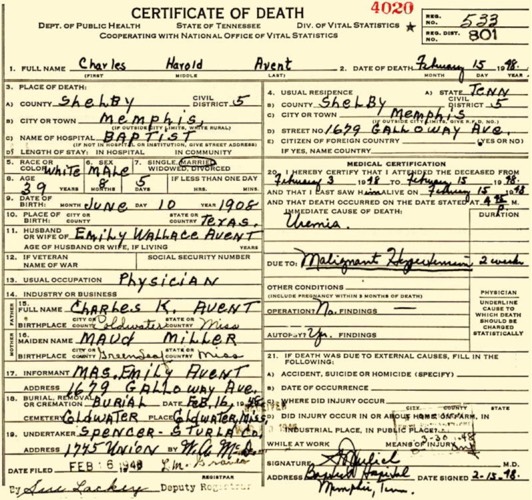 CERTIFICATE OF DEATH
4020
DEPT. OF PUBLIC HEALTH STATE OF TENNESSEE DIV. OF VITAL STATISTICS
COOPERATING WITH NATIONAL OFFICE OF VITAL STATISTICS
REG. NO. 533
REG. DIST. 801
1. FULL NAME Charles Harold Avent
(FIRST) MIDDLE LAST)
2. DATE OF DEATH February 15 1948
MONTH DAY YEAR
3. PLACE OF DEATH:
A) COUNTY SHELBY CIVIL DISTRICT 5
B) CITY OR TOWN Memphis
(IF OUTSIDE CITY LIMITS, WRITE RURAL)
C) NAME OF HOSPITAL BAPTIST
(IF NOT IN HOSPITAL OR INSTITUTION, GIVE STREET ADDRESS)
D) LENGTH OF STAY. IN HOSPITAL IN COMMUNITY
4. USUAL RESIDENCE A) STATE TENN
B) COUNTY SHELBY CIVIL DISTRICT 5
C) CITY OR TOWN MEMPHIS
D) STREET NO 1679 GALLOWAY Ave.
E) CITIZEN OF FOREIGN COUNTRY (YES OR NO)
IF YES, NAME COUNTRY
5. RACE OR COLOR White 6. SEX MALE 7. SINGLE, MARRIED, WIDOWED, DIVORCED
8. AGE 39 YEARS 8 MONTHS 5 DAYS IF LESS THAN ONE DAY HRS. MIN.
9. DATE OF BIRTH: JUNE 10 YEAR 1908
10. PLACE OF BIRTH: CITY OR COUNTY STATE OR COUNTRY TEXAS.
11. HUSBAND OR WIFE OF EMILY WALLACE AVENT
AGE OF HUSBAND OR WIFE, IF LIVING YEARS
12. IF VETERAN NAME OF WAR SOCIAL SECURITY NUMBER
13. USUAL OCCUPATION PHYSICIAN
14. INDUSTRY OR BUSINESS
FATHER
15. FULL NAME CHARLES K. AVENT
BIRTHPLACE CITY OR COUNTY Coldwater STATE OR COUNTRY Miss
MOTHER
16. MAIDEN NAME MAUD MILLER
BIRTHPLACE CITY OR COUNTY Greenleaf STATE OR COUNTRY Miss
17. INFORMANT MRS. EMILY AVENT
ADDRESS 1679 GALLOWAY Ave.
18. BURIAL, REMOVAL OR CREMATION BURIAL DATE FEB, 16, 1948
CEMETERY COLDWATER PLACE COLDWATER, MISS
19. UNDERTAKER SPENCER-STURLA CO.
ADDRESS 1745 UNION BY
DATE FILED FEB 16 1948
REGISTRAR
By Sue Lackey Deputy Registrar
MEDICAL CERTIFICATION
20. I HEREBY CERTIFY THAT I ATTENDED THE DECEASED FROM
February 3 1948 TO February 15 1948
AND THAT I LAST SAW HIM ALIVE ON February 15 1948
AND THAT DEATH OCCURRED ON THE DATE STATED AT P M.
IMMEDIATE CAUSE OF DEATH: DURATION
Uremia.
DUE TO: Malignant Hypertension 2 weeks
OTHER CONDITIONS
(INCLUDE PREGNANCY WITHIN 3 MONTHS OF DEATH)
OPERATION? No. FINDINGS —
AUTOPSY? Yes. FINDINGS
PHYSICIAN
UNDERLINE CAUSE TO WHICH DEATH SHOULD BE CHARGED STATISTICALLY
21. IF DEATH WAS DUE TO EXTERNAL CAUSES, FILL IN THE FOLLOWING:
A) ACCIDENT, SUICIDE OR HOMICIDE (SPECIFY)
B) DATE OF OCCURRENCE
C) WHERE DID INJURY OCCUR CITY CO. STATE
D) DID INJURY OCCUR IN OR ABOUT HOME, ON FARM, IN
INDUSTRIAL PLACE, IN PUBLIC PLACE?
WHILE AT WORK MEANS OF INJURY
3-30-48
SIGNATURE M.D.
ADDRESS Baptist Hospital DATE SIGNED 2-15-48
Memphis, Tenn.